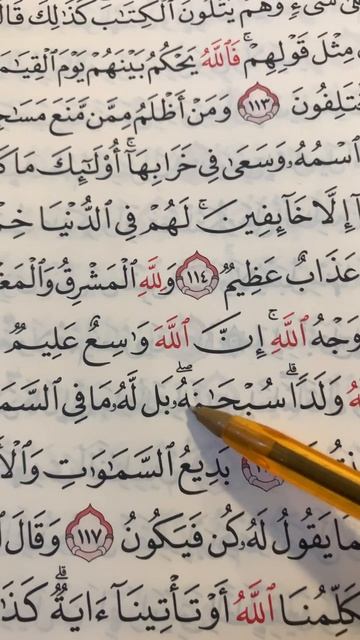 شَىْءٍ وَهُمْ يَتْلُونَ ٱلْكِتَٰبَ كَذَٰلِكَ قَالَ
مِثْلَ قَوْلِهِمْ ۚ فَٱللَّهُ يَحْكُمُ بَيْنَهُمْ يَوْمَ ٱلْقِيَٰمَ
تَلِفُونَ ١١٣ وَمَنْ أَظْلَمُ مِمَّن مَّنَعَ مَسَٰجِ
ٱسْمُهُۥ وَسَعَىٰ فِى خَرَابِهَآ ۚ أُو۟لَٰٓئِكَ مَا كَ
إِلَّا خَآئِفِينَ ۚ لَهُمْ فِى ٱلدُّنْيَا خِ
عَذَابٌ عَظِيمٌ ١١٤ وَلِلَّهِ ٱلْمَشْرِقُ وَٱلْمَغْ
وَجْهُ ٱللَّهِ ۚ إِنَّ ٱللَّهَ وَٰسِعٌ عَلِيمٌ
وَلَدًا ۗ سُبْحَٰنَهُۥ ۖ بَل لَّهُۥ مَا فِى ٱلسَّمَ
بَدِيعُ ٱلسَّمَٰوَٰتِ وَٱلْأَ
يَقُولُ لَهُۥ كُن فَيَكُونُ ١١٧ وَقَالَ ٱ
يُكَلِّمُنَا ٱللَّهُ أَوْ تَأْتِينَآ ءَايَةٌ ۗ كَذَٰ